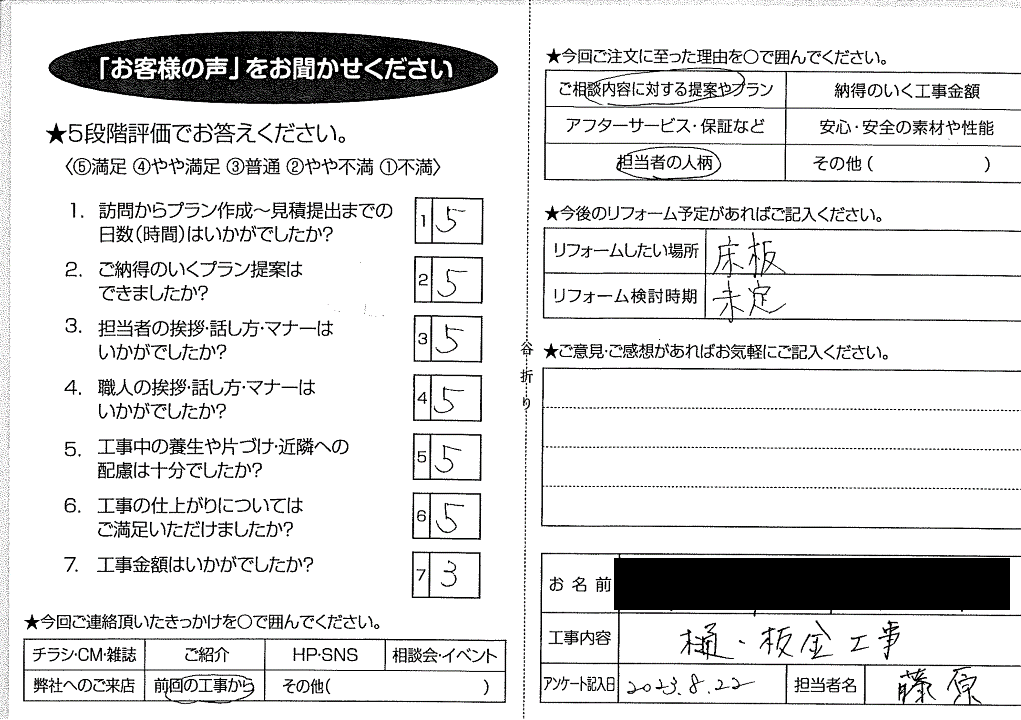 「お客様の声」をお聞かせください
★5段階評価でお答えください。
〈⑤満足 ④やや満足 ③普通 ②やや不満 ①不満〉
1. 訪問からプラン作成～見積提出までの
日数(時間)はいかがでしたか?
1 5
2. ご納得のいくプラン提案は
できましたか?
2 5
3. 担当者の挨拶・話し方・マナーは
いかがでしたか?
3 5
4. 職人の挨拶・話し方・マナーは
いかがでしたか?
4 5
5. 工事中の養生や片づけ・近隣への
配慮は十分でしたか?
5 5
6. 工事の仕上がりについては
ご満足いただけましたか?
6 5
7. 工事金額はいかがでしたか?
7 3
★今回ご連絡頂いたきっかけを〇で囲んでください。
チラシ・CM・雑誌 ご紹介 HP・SNS 相談会・イベント
弊社へのご来店 前回の工事から その他( )
谷折り
★今回ご注文に至った理由を〇で囲んでください。
ご相談内容に対する提案やプラン 納得のいく工事金額
アフターサービス・保証など 安心・安全の素材や性能
担当者の人柄 その他( )
★今後のリフォーム予定があればご記入ください。
リフォームしたい場所 床板
リフォーム検討時期 未定
★ご意見・ご感想があればお気軽にご記入ください。
お名前
工事内容 樋・板金工事
アンケート記入日 2023.8.22 担当者名 藤原